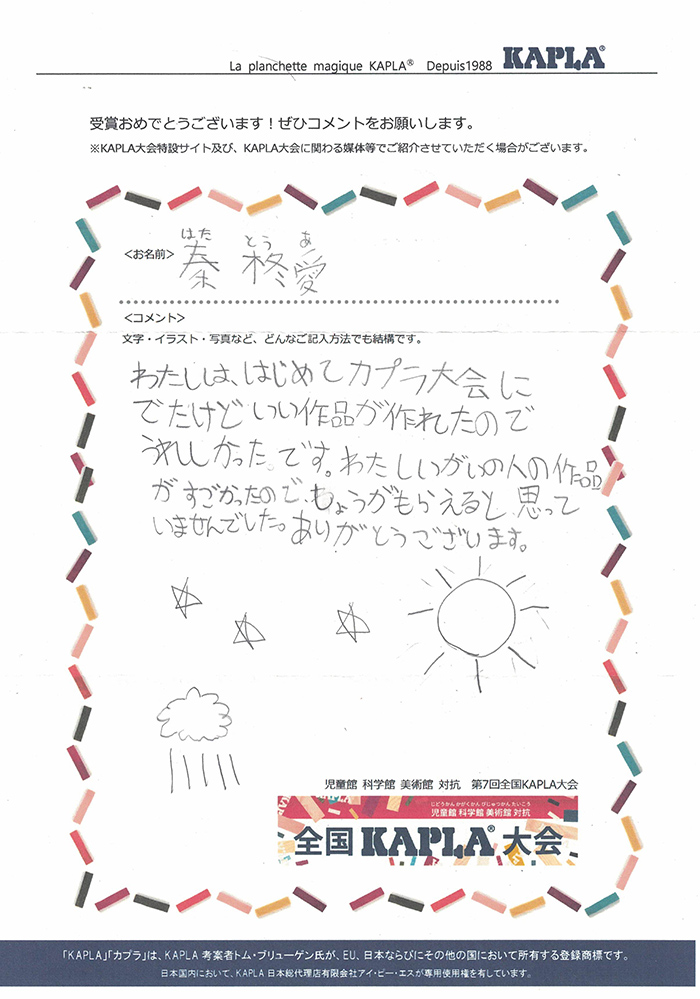 La planchette magique KAPLA® Depuis1988 KAPLA®
受賞おめでとうございます！ぜひコメントをお願いします。
※KAPLA大会特設サイト及び、KAPLA大会に関わる媒体等でご紹介させていただく場合がございます。
はた とう あ
<お名前> 秦 柊愛
<コメント>
文字・イラスト・写真など、どんなご記入方法でも結構です。
わたしは、はじめてカプラ大会に
でたけどいい作品が作れたので
うれしかったです。わたしいがいの人の作品
がすごかったので、しょうがもらえると思って
いませんでした。ありがとうございます。
児童館 科学館 美術館 対抗 第7回全国KAPLA大会
じどうかん かがくかん びじゅつかん たいこう
児童館 科学館 美術館 対抗
全国KAPLA®大会
「KAPLA」「カプラ」は、KAPLA 考案者トム・ブリューゲン氏が、EU、日本ならびにその他の国において所有する登録商標です。
日本国内において、KAPLA 日本総代理店有限会社アイ・ピー・エスが専用使用権を有しています。